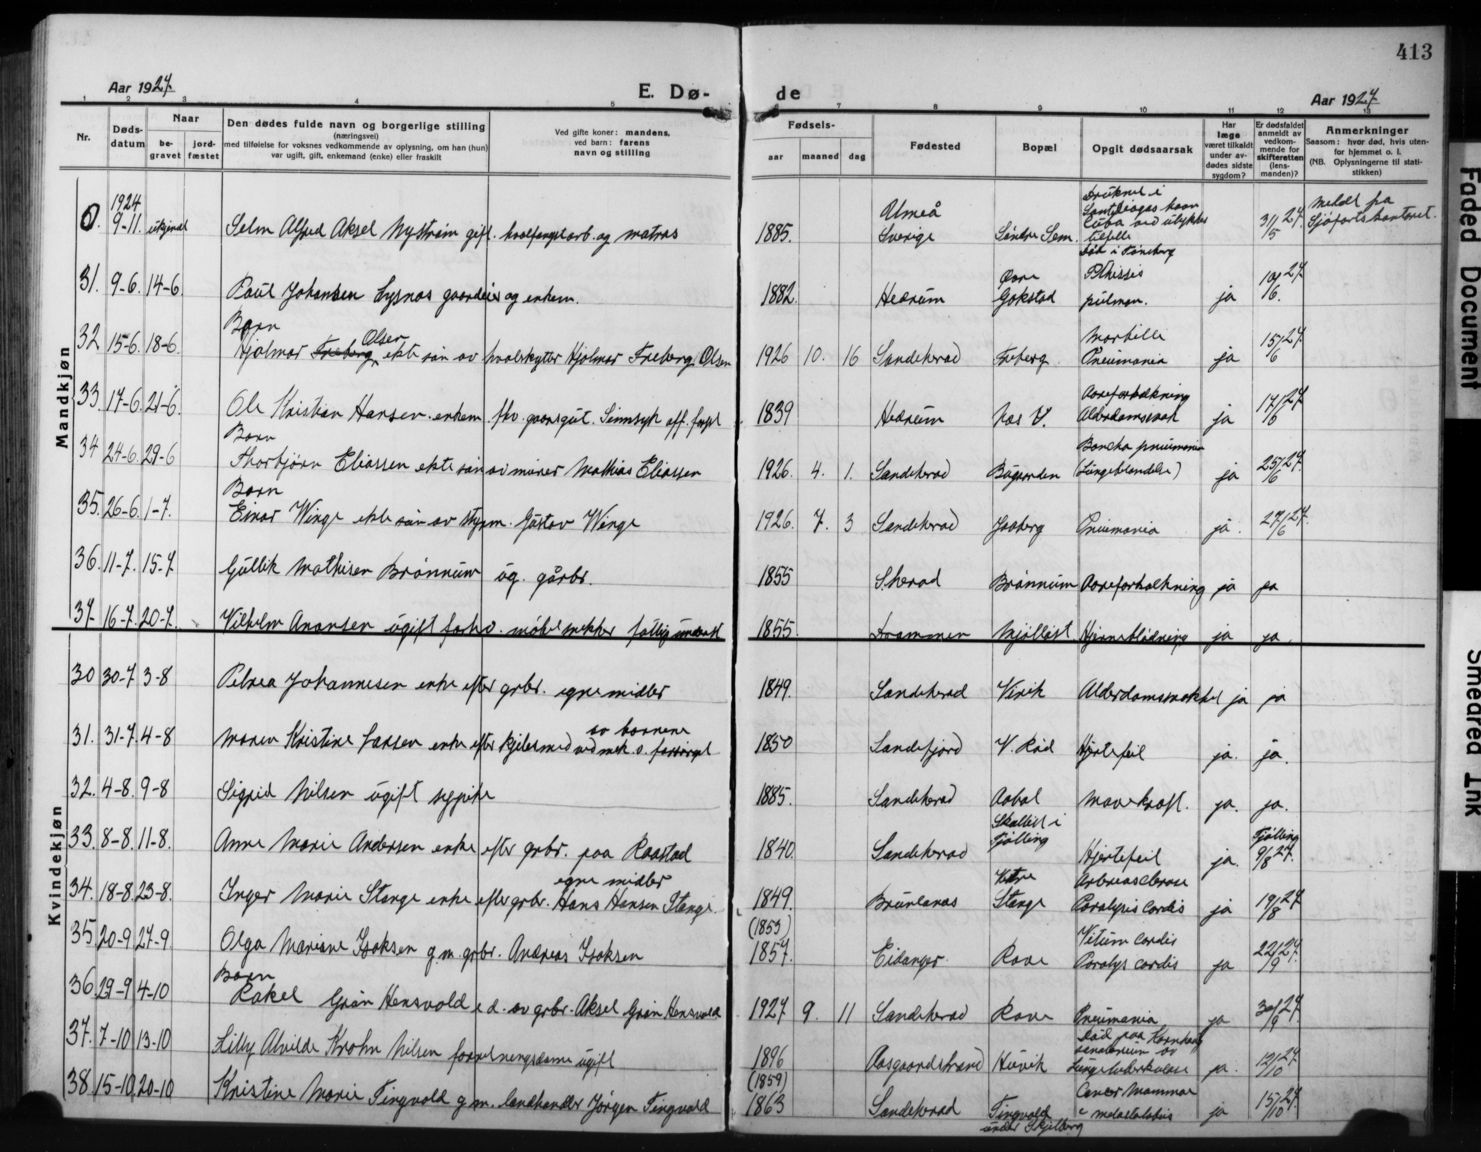 413
Aar 1927.
E. Dø-
de
Aar 1927
1 2 3 4 5 7 8 9 10 11 12 13
Nr.
Døds-
datum
Naar
be-
gravet
jord-
fæstet
Den dødes fulde navn og borgerlige stilling
(næringsvei)
med tilføielse for voksnes vedkommende av oplysning, om han (hun)
var ugift, gift, enkemand (enke) eller fraskilt
Ved gifte koner: mandens,
ved barn: farens
navn og stilling
Fødsels-
aar maaned dag
Fødested
Bopæl
Opgit dødsaarsak
Har
læge
været tilkaldt
under av-
dødes sidste
sygdom?
Er dødsfaldet
anmeldt av
vedkom-
mende for
skifteretten
(lens-
manden)?
Anmerkninger
Saasom: hvor død, hvis uten-
for hjemmet o. l.
(NB. Oplysningerne til stati-
stikken)
Mandkjøn
0. 1924 9-11. ukjendt Selm Alfred Aksel Nystrøm gift. hvalfangstarb. og matros 1885. Umeå Sverige Søndre Sem. Druknet i Santiagos havn Cuba ved ulykkestilfelle 31/5 27. Meldt fra Sjøfartskontoret.
31. 9-6. 14-6 Paul Johansen gaardeier og enkem. 1882. Hedrum Øvre Gokstad Pthissis pulmon. ja 10/6 27.
32 15-6. 18-6 Barn Hjalmar Freberg Olsen ekte søn av hvalskytter Hjalmar Freberg Olsen 1926 10. 16 Sandeherad Freberg Morbille Pneumonia ja 15/6 27.
33. 17-6. 21-6. Ole Kristian Hansen enkem. fhv. gaardsgut. Sinnsyk off. forpl 1839 Hedrum Aas V. Aareforkalkning Alderdomssvak ja 17/6 27
34 24-6. 29-6 Barn Thorbjørn Eliassen ekte søn av murer Mathias Eliassen 1926. 4. 1. Sandeherad Bugaarden Boncho pneumonia (Lungebtendelse) ja 25/6 27.
35. 26-6. 1-7. Barn Einar Winge ekte søn av styrm. Gustav Winge 1926. 7. 3 Sandeherad Jaaberg Pneumonia ja. 27/6 27.
36. 11-7. 15-7. Gullik Mathisen Brønnum ug. gårbr. 1855 S.herad Brønnum Aareforkalkning ja ja
37. 16-7. 20-7. Vilhelm Anonsen ugift forhv. møbelsnekker fattigunderst 1855. Drammen Mjøllöst Hjerneblødning ja ja.
Kvindekjøn
30 30-7 3-8 Petrea Johannesen enke efter grbr. egne midler 1849. Sandeherad Virik Alderdomssvakhet ja ja
31. 31-7. 4-8 Maren Kristine Larsen enke efter kjelesmed ved mek. v. forsørget av barnene 1850 Sandefjord V. Rød Hjertefeil ja. ja.
32. 4-8. 9-8 Sigrid Nilsen ugift sypike 1885. Sandeherad Aabol Mavekræft. ja. ja.
33. 8-8. 11-8. Anne Marie Andersen enke efter grbr. paa Raastad 1840. Sandeherad Skallist i Tjølling Hjertefeil ja. Tjølling 9/8 27.
34. 18-8. 23-8. Inger Marie Stange enke efter grbr. Hans Hansen Stange. egne midler 1849. Brunlanes Vestre Stange Paralysis cordis ja 19/8 27
35 20-9. 27-9. Olga Mariane Isaksen g. m. grbr. Andreas Isaksen (1853) 1857. Eidanger Rave Vitium cordis Paralys cordis ja 22/9 27.
36. 29-9 4-10 Barn Rakel Grøn Hensvold e.d. av grbr. Aksel Grøn Hensvold 1927 9. 11 Sandeherad Rove Pneumonia ja 30/9 27.
37. 7-10 13-10 Lilly Alvilde Krohn Nilsen forretningsdame ugift 1896 Aasgaardstrand Huvik Død paa sanatorium av Lungetuberkulose ja. 12/10 27.
38. 15-10. 20-10 Kristine Marie Tingvold g. m. landhandler Jørgen Tingvold (1859) 1863 Sandeherad Tingvold under Skjelberg Cancer Mammae c metastasis ja 15/10 27.
Faded Document
Smeared Ink